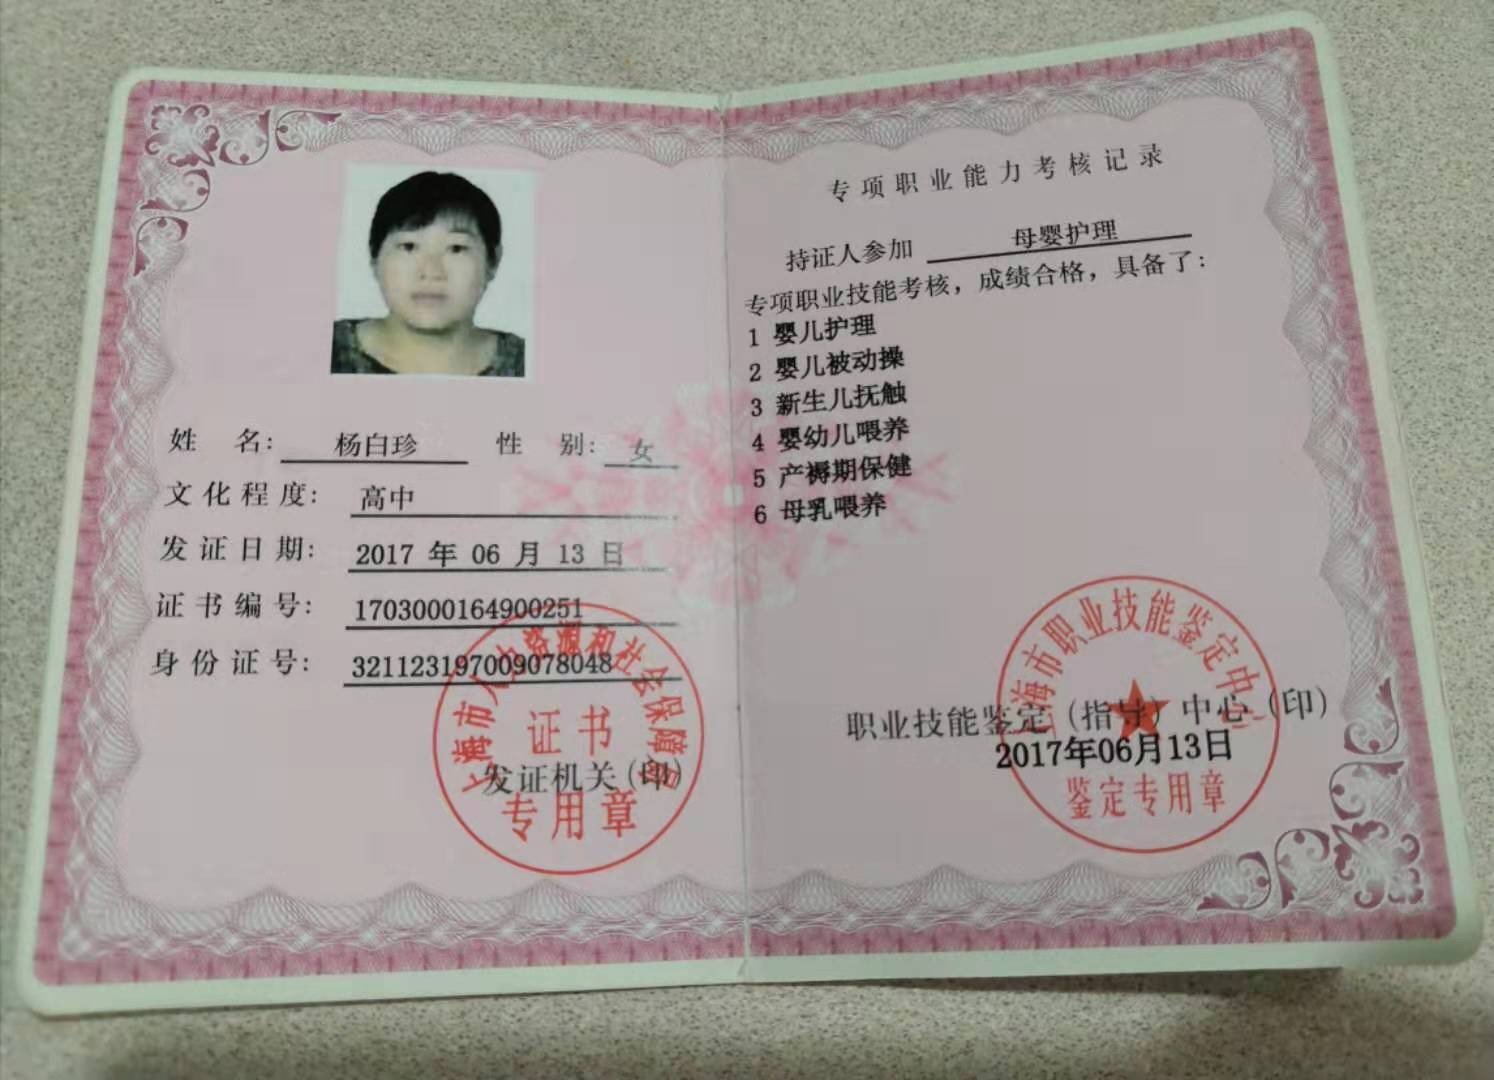 姓 名: 杨白珍 性 别: 女
文化程度: 高中
发证日期: 2017 年 06 月 13 日
证书编号: 1703000164900251
身份证号: 321123197009078048
上海市人力资源和社会保障局
证书
发证机关(印)
专用章
专项职业能力考核记录
持证人参加 母婴护理
专项职业技能考核，成绩合格，具备了:
1 婴儿护理
2 婴儿被动操
3 新生儿抚触
4 婴幼儿喂养
5 产褥期保健
6 母乳喂养
上海市职业技能鉴定中心
职业技能鉴定(指导)中心(印)
2017年06月13日
鉴定专用章